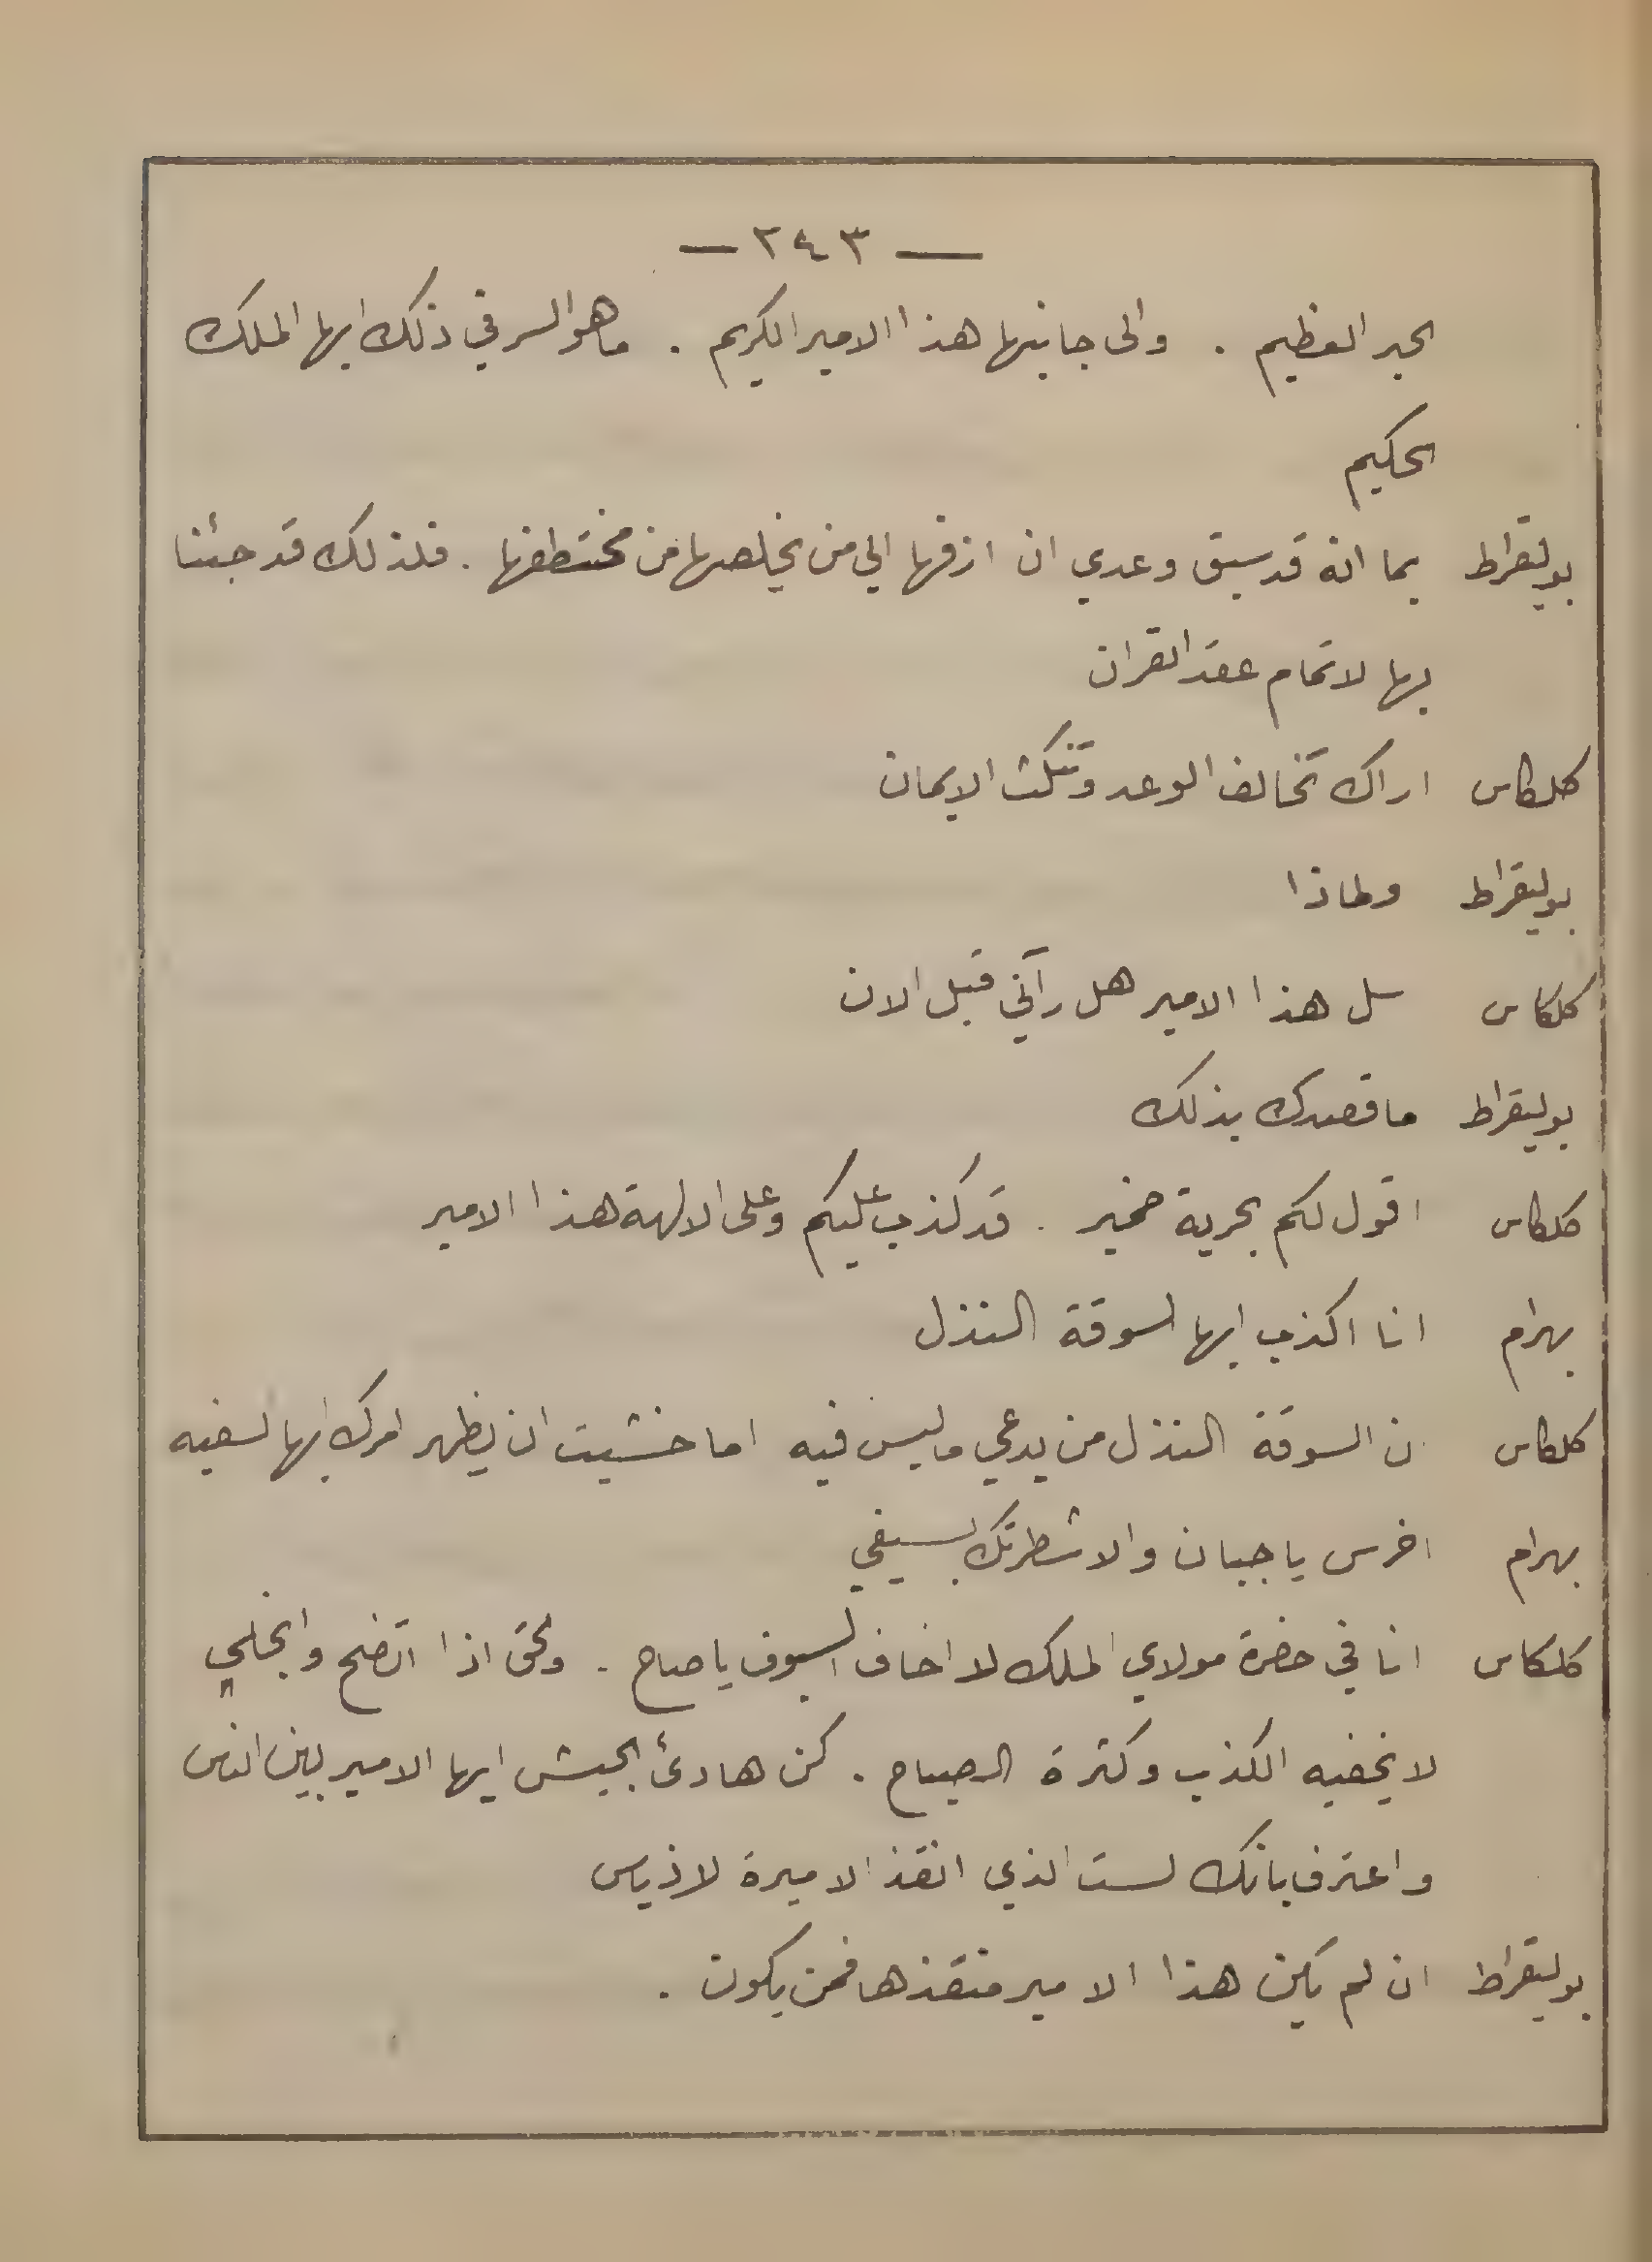 — ٢٤٣ —
الحبر العظيم . والى جانبها هذا الامير الكريم . ما هو السر في ذلك ايها الملك
الحكيم
بوليقراط بما انه قد سبق وعدي ان ازفها الي من يخلصها من مختطفها . فلذلك قد جئنا
بها لاتمام عقد القران
كلكاس اراك تخالف الوعد وتنكث الايمان
بوليقراط ولماذا
كلكاس سل هذا الامير هل رآني قبل الان
بوليقراط ما قصدك بذلك
كلكاس اقول لكم بحرية ضمير . قد كذب عليكم وعلى الالهة هذا الامير
بهرام انا اكذب ايها السوقة النذل
كلكاس ن السوقة النذل من يدعي ما ليس فيه اما خشيت ان يظهر امرك ايها السفيه
بهرام اخرس يا جبان والا شطرتك بسيفي
كلكاس انا في حضرة مولاي الملك لا اخاف السيوف يا صاح . والحق اذا اتضح وانجلى
لا يخفيه الكذب وكثرة الصياح . كن هادئ الجيش ايها الامير بين الناس
واعترف بانك لست الذي انقذ الاميرة لاذياس
بوليقراط ان لم يكن هذا الامير منقذها فمن يكون .